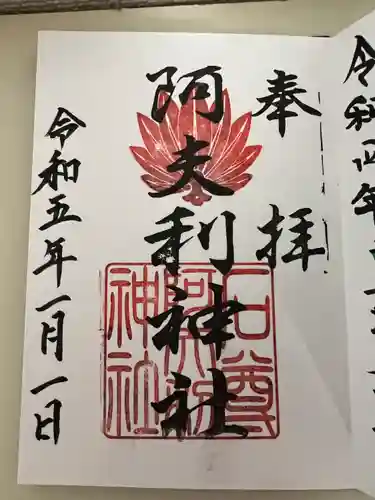 奉拝
阿夫利神社
令和五年一月一日
石尊
阿夫利
神社
令和四年